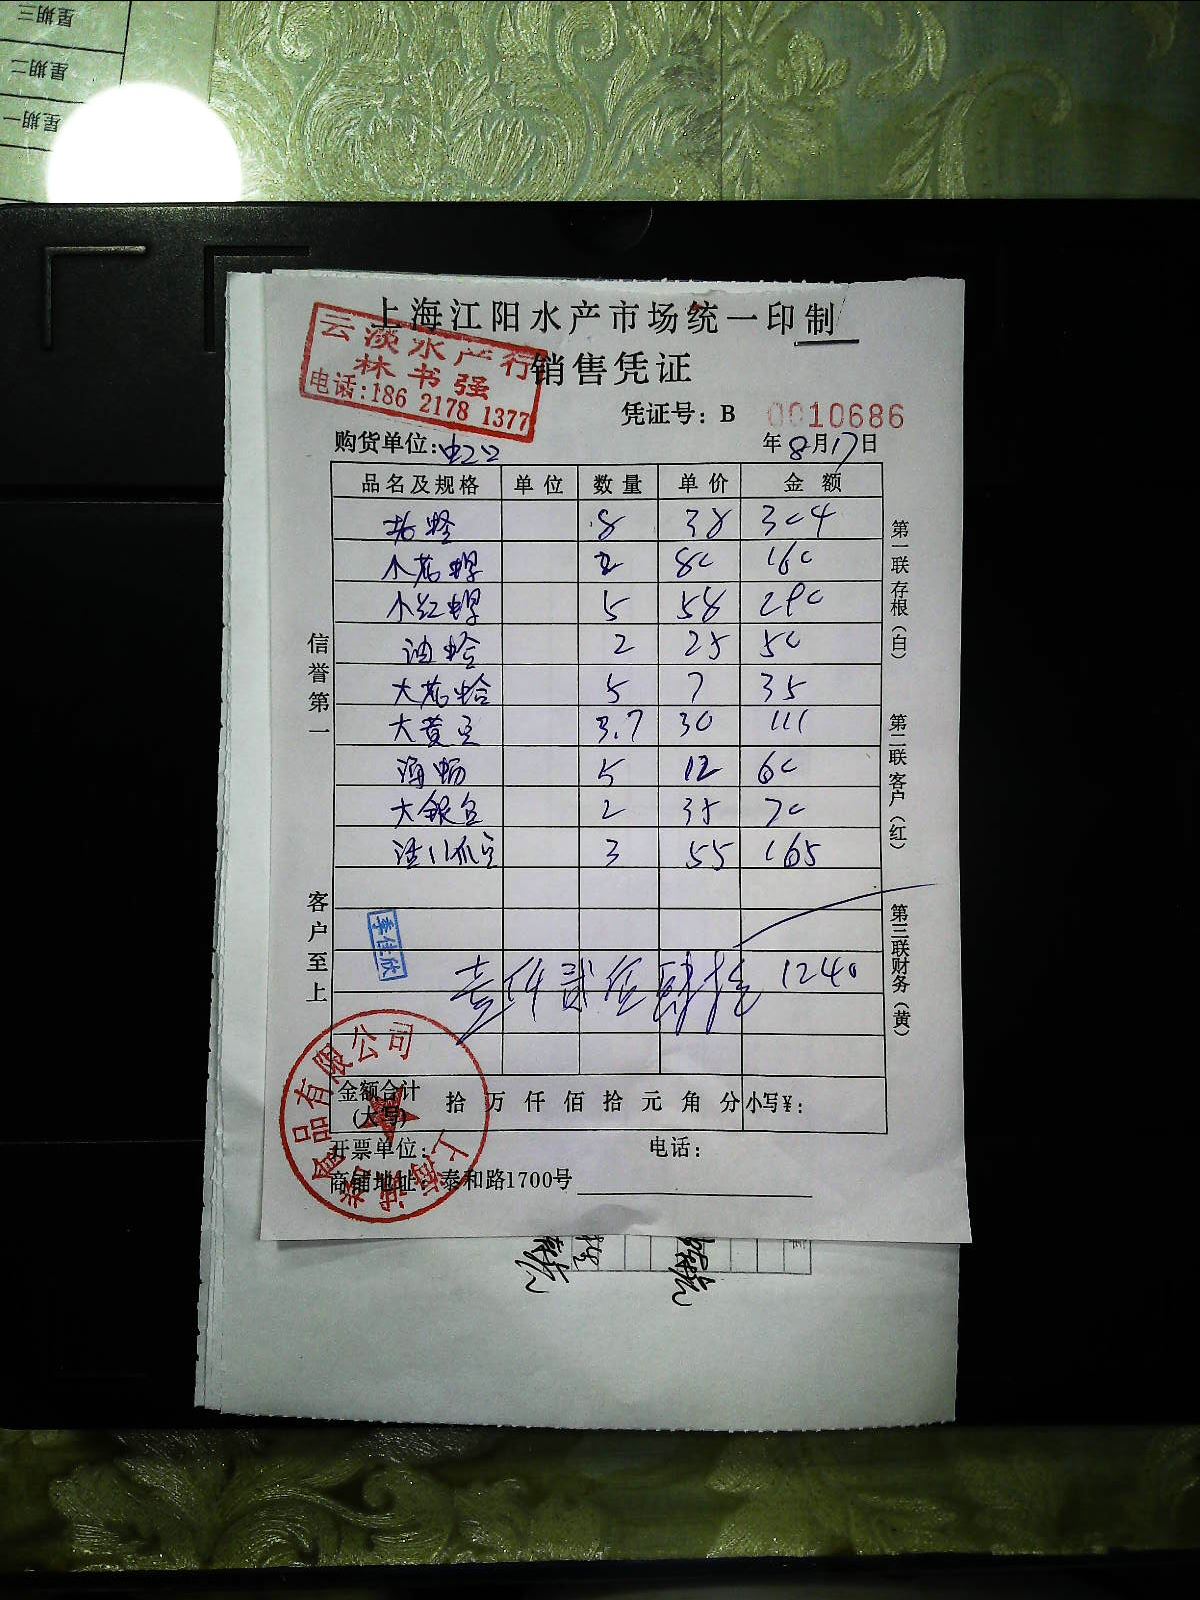 星期三
星期二
星期一
上海江阳水产市场统一印制
云淡水产行
林书强
电话:186 2178 1377
销售凭证
凭证号: B 0010686
购货单位:虹口
年8月17日
品名及规格 单位 数量 单价 金额
8 38 304
小花螺 2 80 160
小红螺 5 58 290
油蛤 2 25 50
大花蛤 5 7 35
大黄豆 3.7 30 111
海 5 12 60
大银豆 2 35 70
3 55 165
李佳欣
壹仟贰佰肆拾 1240
金额合计
(大写) 拾 万 仟 佰 拾 元 角 分 小写¥:
开票单位: 电话:
商铺地址: 泰和路1700号
信誉第一
客户至上
第一联存根(白)
第二联客户(红)
第三联财务(黄)
食品有限公司
上海